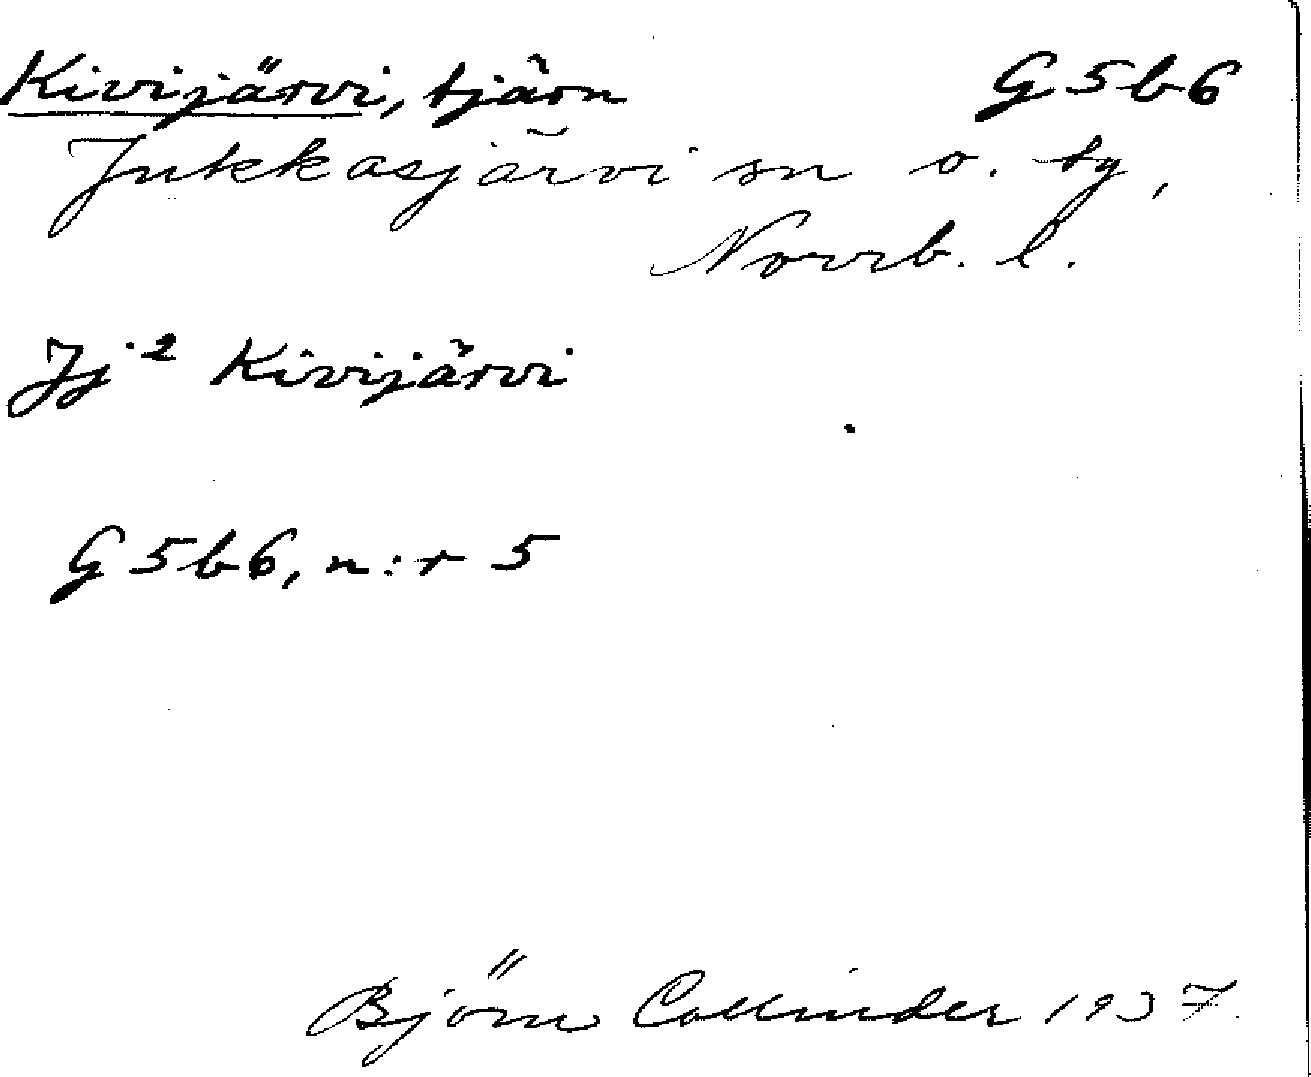 Kivijärvi, tjärn G5b6
Jukkasjärvi sn o. tg,
Norrb. l.
Jj² Kivijärvi
G5b6, n:r 5
Björn Collinder 1937.